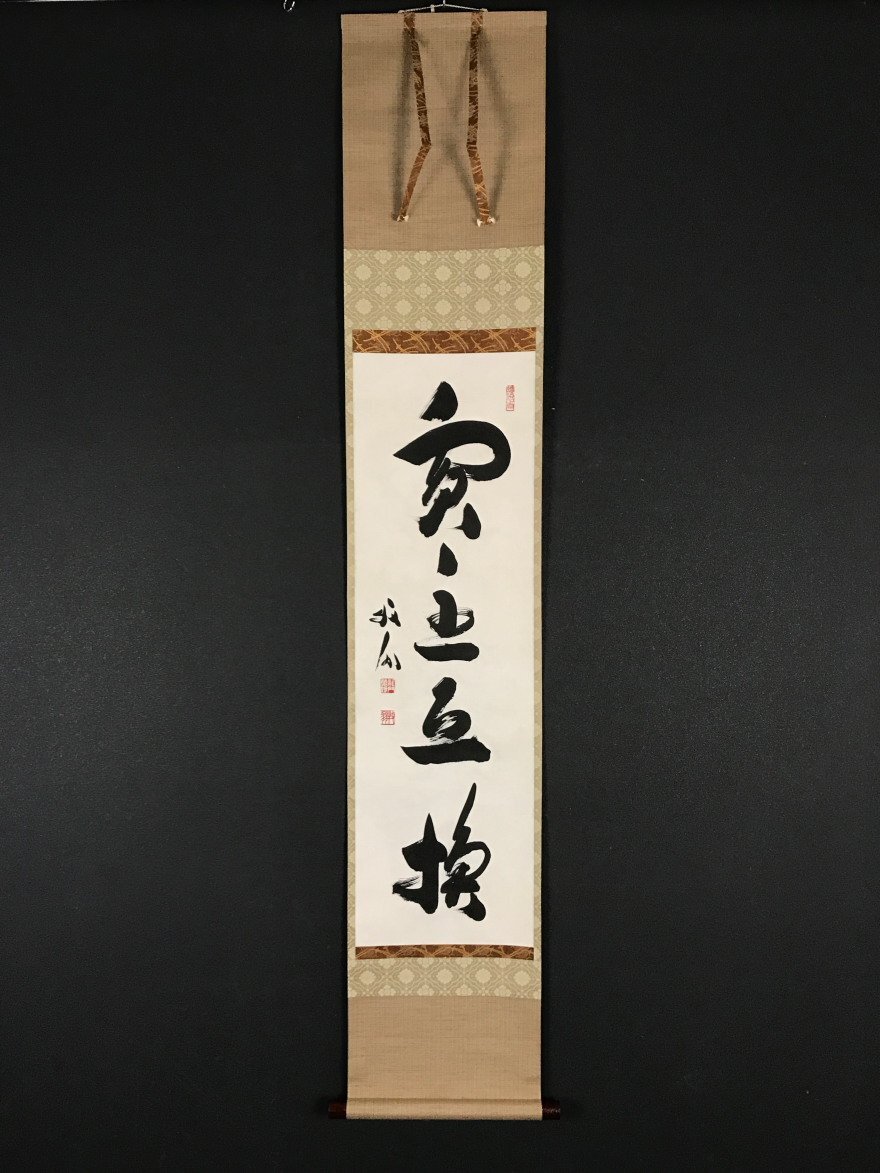 賓主互換